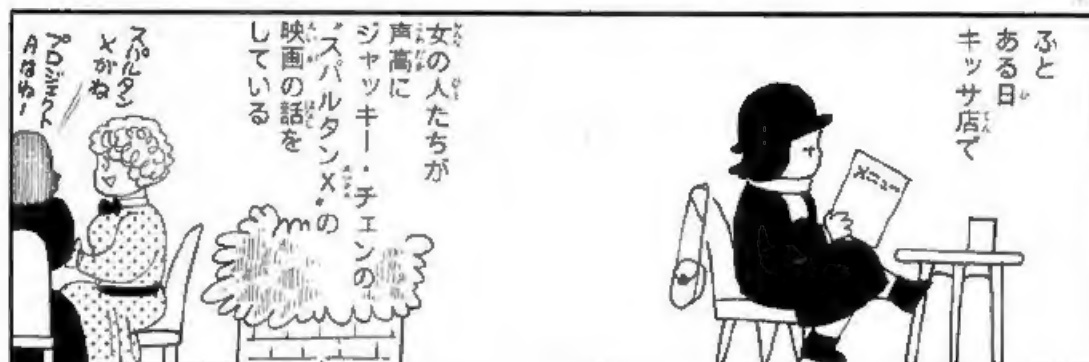 ふと
ある日
キッサ店で
メニュー
女の人たちが
声高に
ジャッキー・チェンの
"スパルタンX"の
映画の話を
している
スパルタン
Xがね
プロジェクト
Aはねー